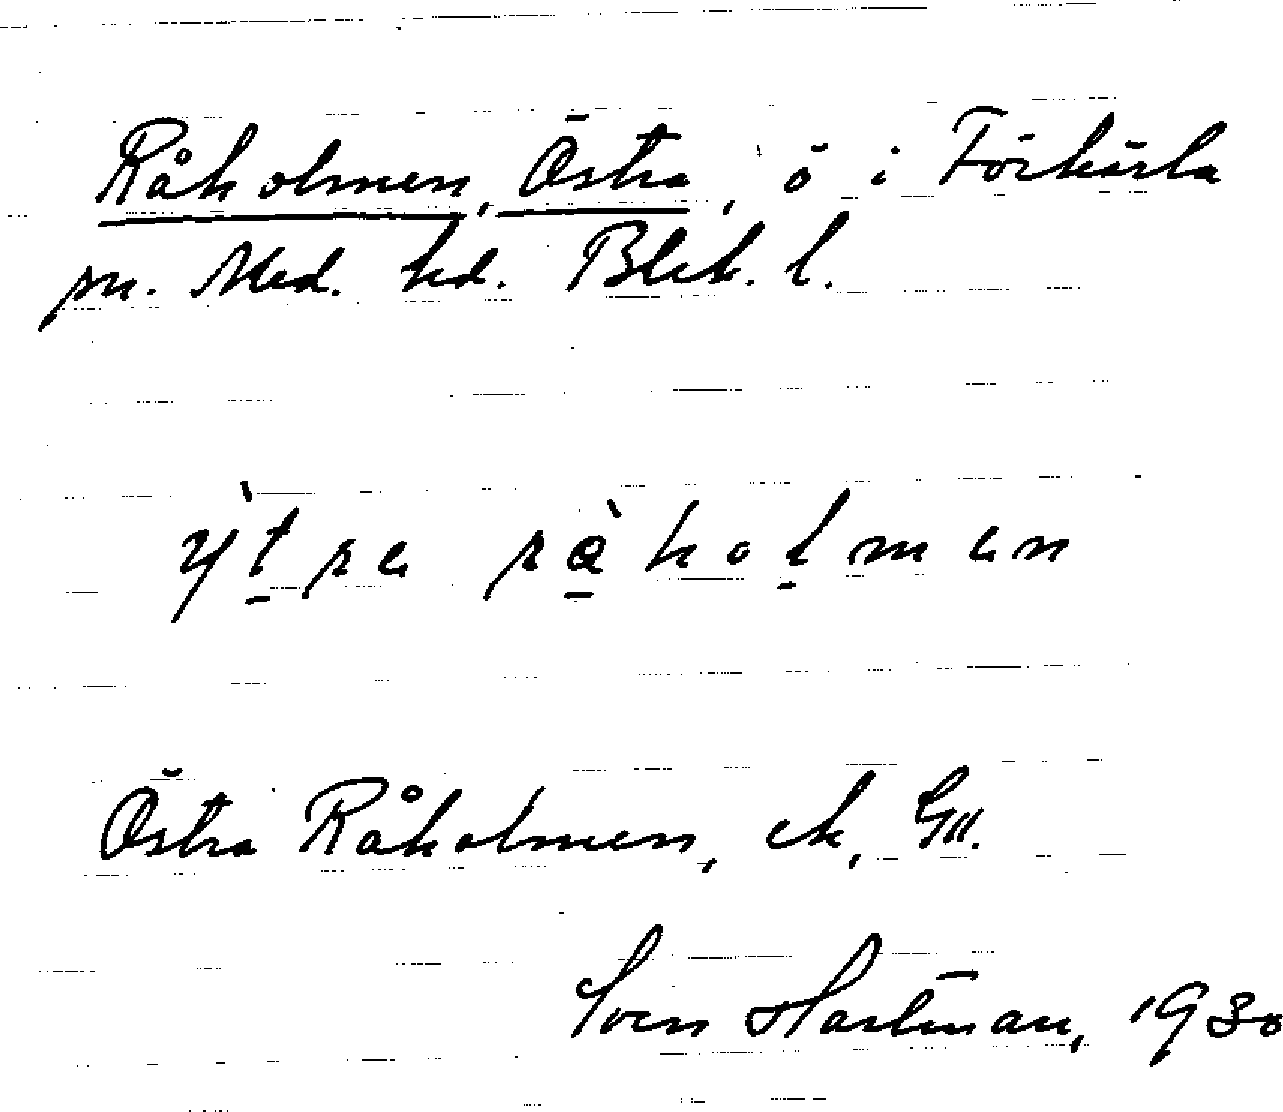 Råholmen, Östra, ö i Förkärla
sn. Med. hd. Blek. l.
ỳt̠ra rå̠̀hol̠men
Östra Råholmen, ek, GII.
Sven Hartman, 1930